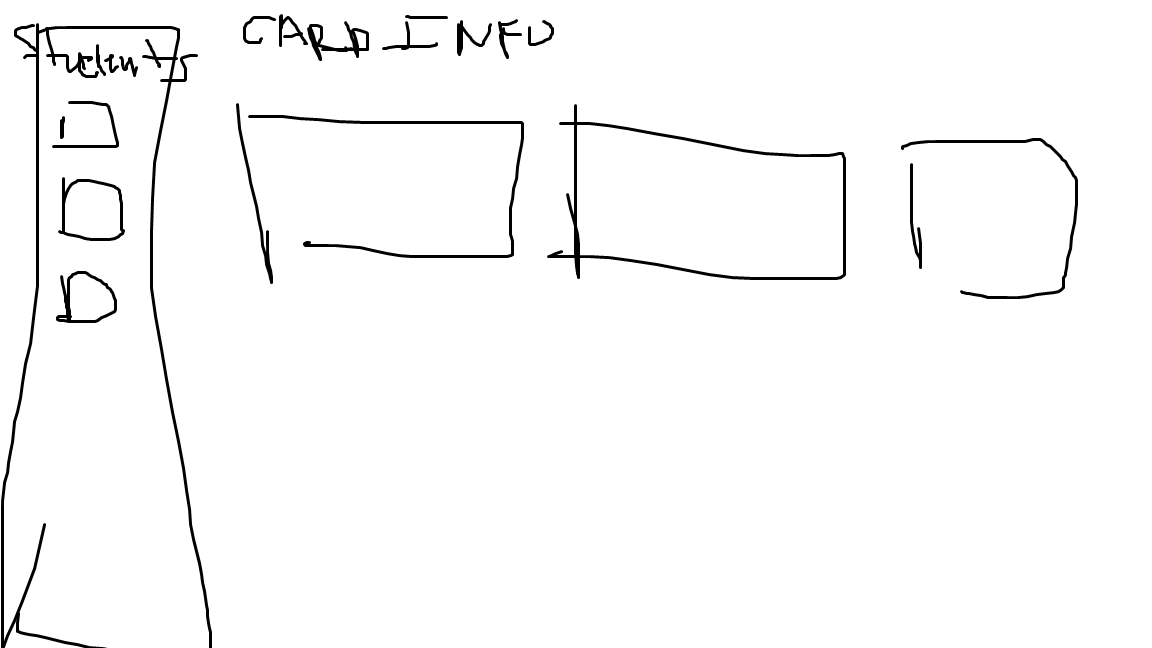 Students
CARD INFO